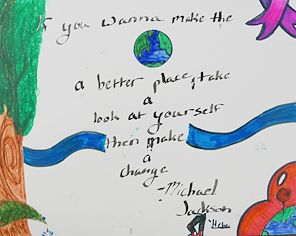 If you wanna make the
a better place, take
a
look at yourself
then make
a
change
-Michael
Jackson